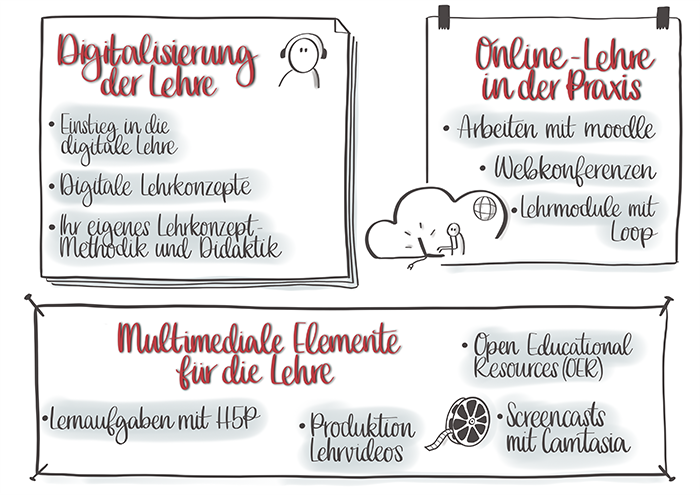 Digitalisierung
der Lehre
• Einstieg in die
digitale Lehre
• Digitale Lehrkonzepte
• Ihr eigenes Lehrkonzept-
Methodik und Didaktik
Online-Lehre
in der Praxis
• Arbeiten mit moodle
• Webkonferenzen
• Lehrmodule mit
Loop
Multimediale Elemente
für die Lehre
• Lernaufgaben mit H5P
• Produktion
Lehrvideos
• Open Educational
Resources (OER)
• Screencasts
mit Camtasia